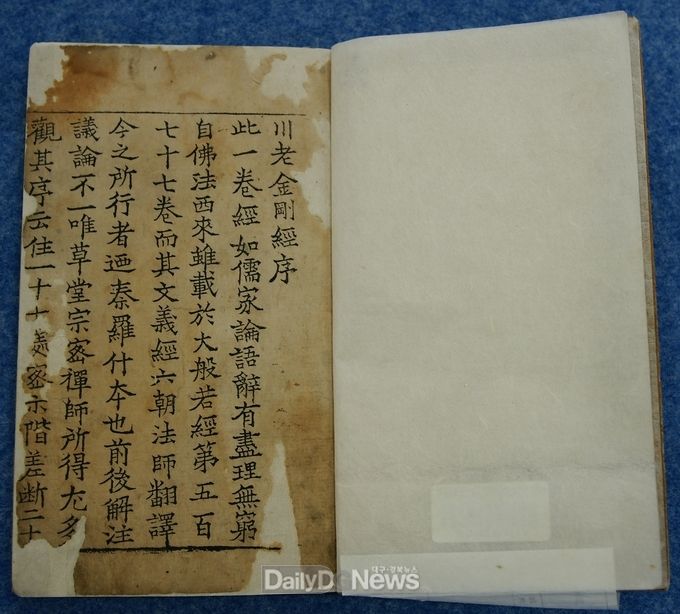 川老金剛經序
此一卷經如儒家論語辭有盡理無窮
自佛法西來雖載於大般若經第五百
七十七卷而其文義經六朝法師翻譯
今之所行者迺秦羅什夲也前後解注
議論不一唯草堂宗宻禪師所得尤多
觀其序云住一十處宻示階差断二十
대구·경북뉴스
DailyDGNews